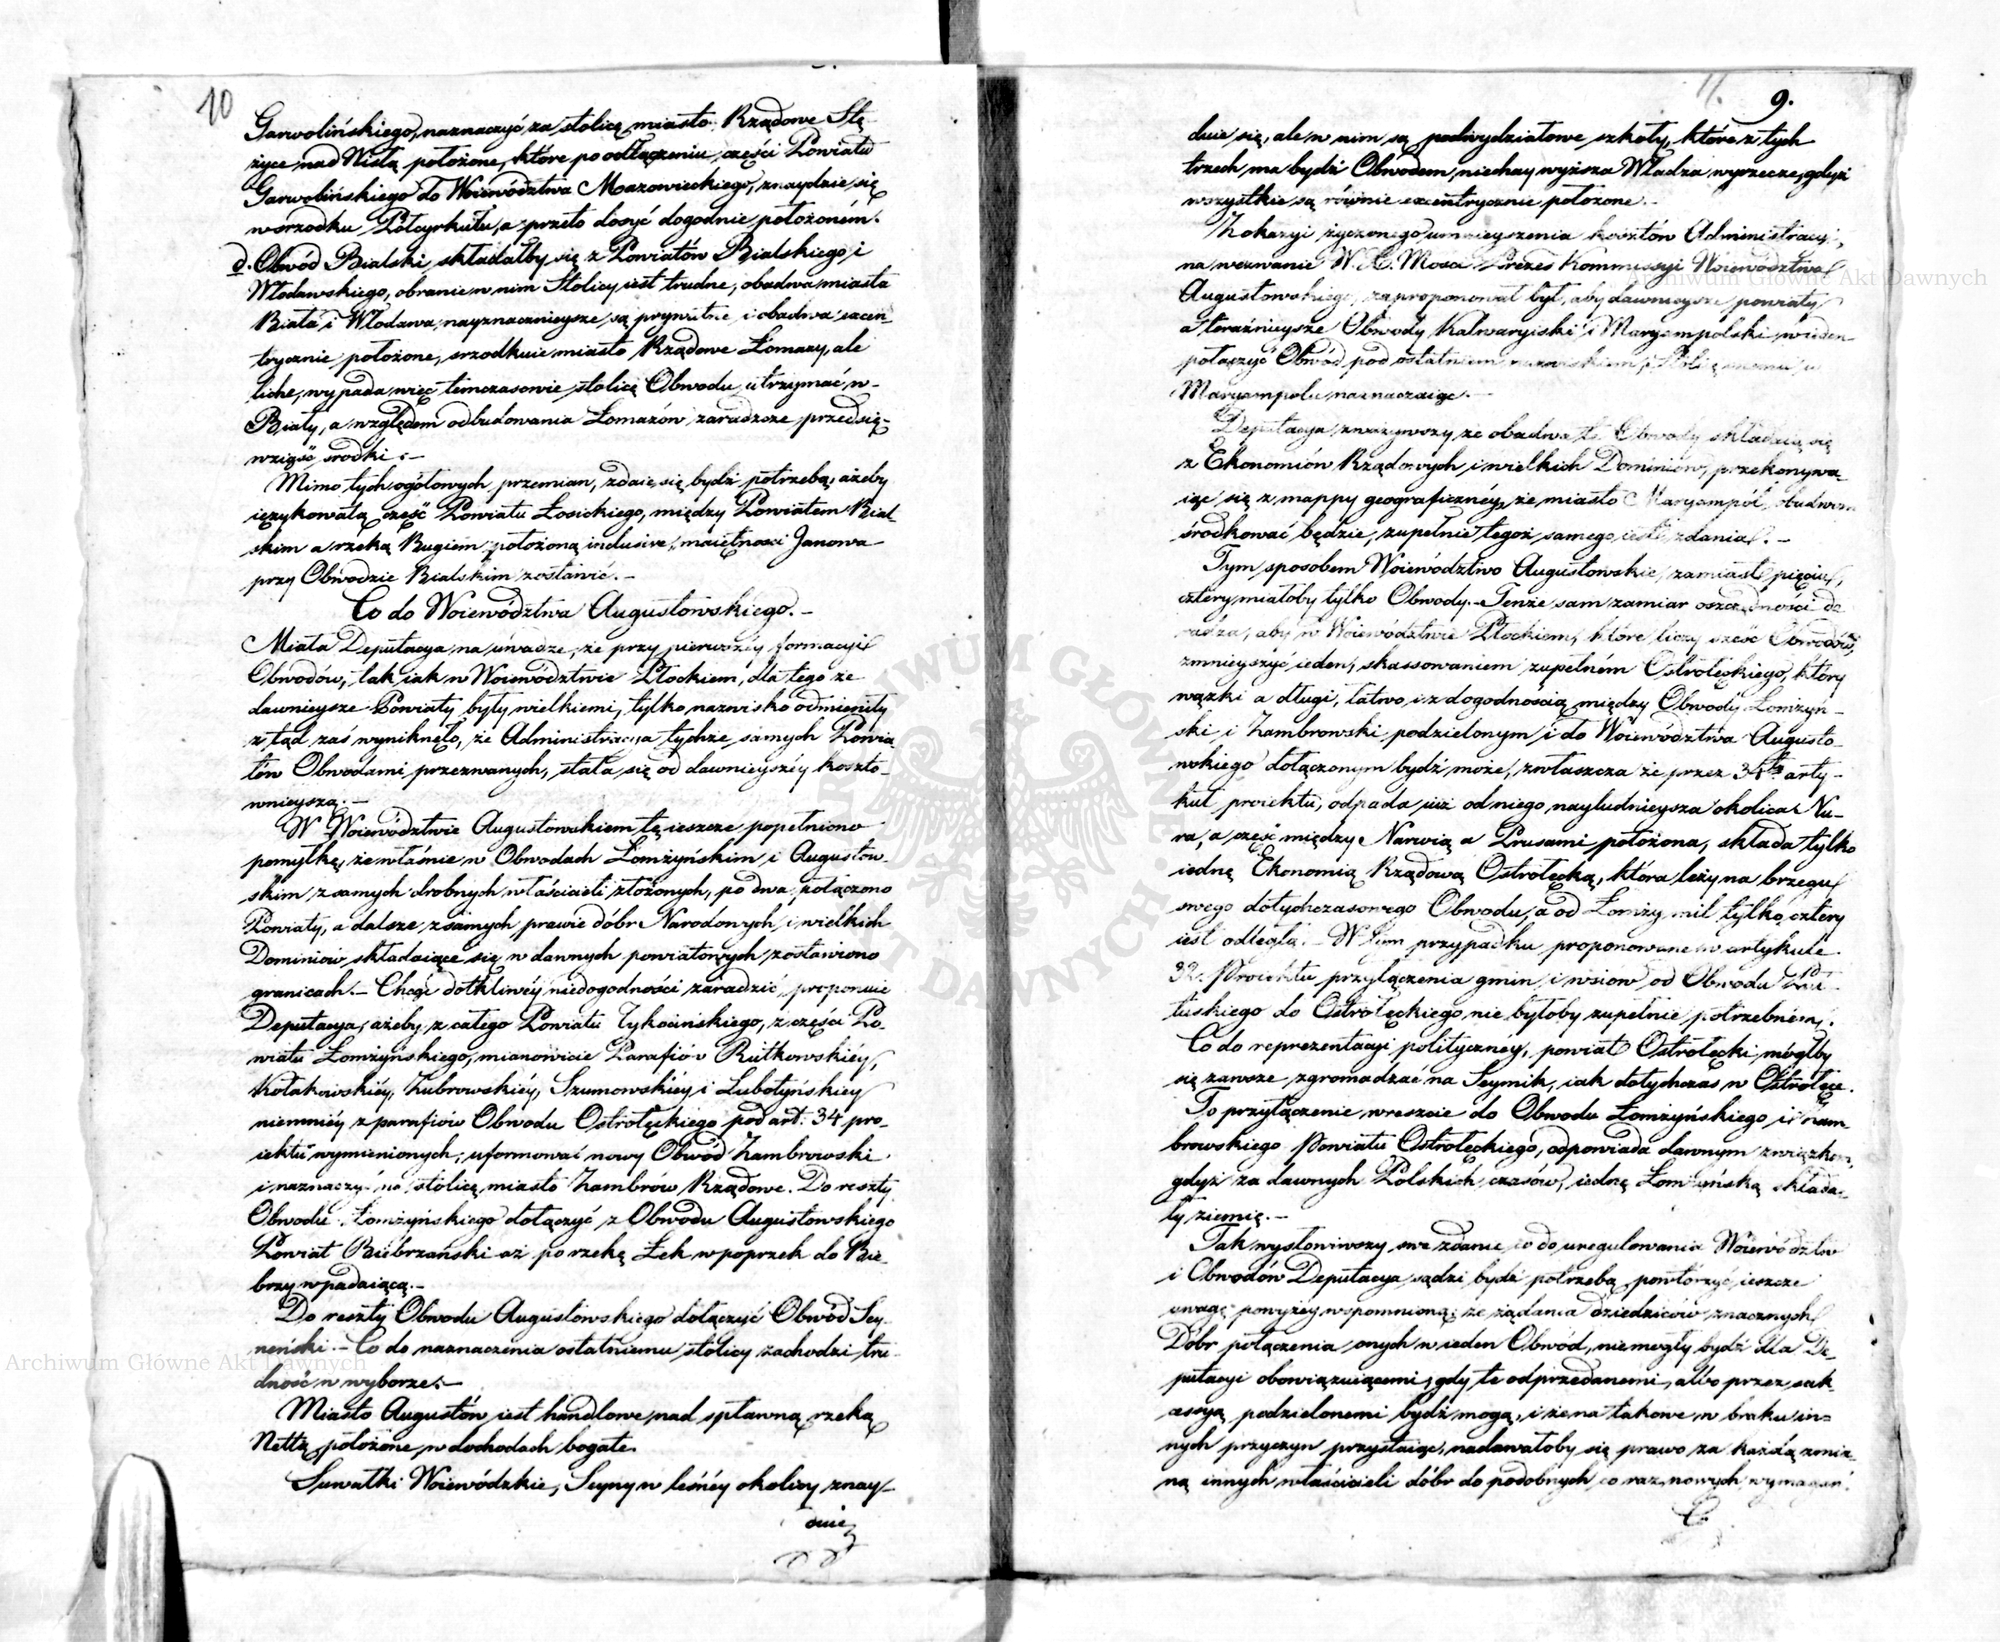 10
Garwolińskiego, naznaczyć za stolicę miasto Rządowe Stę-
życe nad Wisłą położone, które po odłączeniu części Powiatu
Garwolińskiego do Woiewództwa Mazowieckiego, znaydzie się
w srzodku Półcyrkułu, a przeto dosyć dogodnie położoném.
d. Obwód Bialski składałby się z Powiatów Bialskiego i
Włodawskiego, obranie w nim Stolicy iest trudne, obadwa miasta
Biała i Włodawa, nayznacznieysze są prywatne i obadwa excen-
trycznie położone, srzodkuie miasto Rządowe Łomazy, ale
liche, wypada więc témczasowie stolicę Obwodu utrzymać w
Biały, a względem odbudowania Łomazów zaradcze przedsię-
wziąść srodki.-
Mimo tych ogólowych przemian, zdaie się bydź potrzebą, ażeby
ięzykowatą część Powiatu Łosickiego, między Powiatem Bial-
skim a rzeką Bugiem położoną inclusive, maiętnosci Janowa
przy Obwodzie Bialskim zostawić.-
Co do Woiewództwa Augustowskiego.-
Miała Deputacya na uwadze, że przy pierwszéy formacyi
Obwodów, tak iak w Woiewództwie Płockiem, dla tego że
dawnieysze Powiaty były wielkiemi, tylko nazwisko odmieniły
z tąd zaś wyniknęło, że Administracya tychże samych Powia
tów Obwodami przezwanych, stała się od dawnieyszéy koszto-
wnieyszą.-
W Woiewództwie Augustowskiem tę ieszcze popełniono
pomyłkę, że właśnie w Obwodach Łomżyńskim i Augustow-
skim, z samych drobnych właścicieli złożonych, po dwa połączono
Powiaty, a dalsze, z samych prawie dóbr Narodowych i wielkich
Dominiów składaiące się w dawnych powiatowych zostawiono
granicach.- Chcąc dotkliwéy niedogodności zaradzić, proponuie
Deputacya, ażeby z całego Powiatu Tykocińskiego, z części Po-
wiatu Łomżyńskiego, mianowicie Parafiów Rutkowskiéy,
Kołakowskiéy, Zubrowskiéy, Szumowskiéy i Lubotyńskiey
niemniéy z parafiów Obwodu Ostrołęckiego pod art: 34 pro-
iektu wymienionych, uformować nowy Obwód Zambrowski
i naznaczyć na stolicę miasto Zambrów Rządowe. Do reszty
Obwodu Łomżyńskiego dołączyć z Obwodu Augustowskiego
Powiat Biebrzański aż po rzekę Łek w poprzek do Bie-
brzy wpadaiącą.-
Do reszty Obwodu Augustowskiego dołączyć Obwód Sey-
neński.- Co do naznaczenia ostatniemu stolicy zachodzi tru-
dność w wyborze.-
Miasto Augustów iest handlowe, nad spławną rzeką
Nettą położone, w dochodach bogate.
Suwałki Woiewódzkie, Seyny w leśnéy okolicy znay-
duie
9.
duie się, ale w nim są podwydziałowe szkoły, które z tych
trzech ma bydź Obwodem, niechay wyższa Władza wyrzecze, gdyż
wszystkie są równie excentrycznie położone.-
Z okazyi życzonego umnieyszenia kosztów Administracyi,
na wezwanie W. X. Mosci Prezes Kommissyi Woiewództwa
Augustowskiego, zaproponował był, aby dawnieysze powiaty
a teraźnieysze Obwody Kalwaryiski i Maryampolski w ieden
połączyć Obwód pod ostatniem nazwiskiem, Stolicę onemu w
Maryampolu naznaczaiąc.-
Deputacya zważywszy że obadwa te Obwody składaią się
z Ekonomiów Rządowych i wielkich Dominiów, przekonywa-
iąc się z mappy geograficznéy, że miasto Maryampol obudwom
środkować będzie, zupełnie tegoż samego iest zdania.-
Tym sposobem Woiewództwo Augustowskie, zamiast pięciu,
cztery miałoby tylko Obwody.- Tenże sam zamiar oszczędności do
radza, aby w Woiewództwie Płockiem, które liczy sześć Obwodów,
zmnieyszyć ieden, skassowaniem zupełném Ostrołęckiego, który
wązki a długi, łatwo i z dogodnością między Obwody Łomżyń-
ski i Zambrowski podzielonym i do Woiewództwa Augusto-
wskiego dołączonym bydź może, zwłaszcza że przez 34ty arty-
kuł proiektu, odpada iuż od niego nayludnieysza okolica Nu-
ra, a część między Narwią a Prusami położona, składa tylko
iednę Ekonomią Rządową Ostrołęcką, która leży na brzegu
swego dotychczasowego Obwodu, a od Łomży mil tylko cztery
iest odległa.- W tym przypadku proponowane w artykule
32. Proiektu przyłączenia gmin i wsiow od Obwodu Puł-
tuskiego do Ostrołęckiego nie byłoby zupełnie potrzebném.
Co do reprezentacyi polityczney, powiat Ostrołęcki mógłby
się zawsze zgromadzać na Seymik, iak dotychczas w Ostrołęce.
To przyłączenie wreszcie do Obwodu Łomżyńskiego i Zam-
browskiego Powiatu Ostrołęckiego, odpowiada dawnym związkom,
gdyż za dawnych Polskich czasów, iednę Łomżyńską składa-
ły ziemię.-
Tak wysłowiwszy swe zdanie co do uregulowania Woiewództw
i Obwodów Deputacya sądzi bydź potrzebą powtórzyć ieszcze
uwagę powyżey wspomnioną, że żądania dziedziców znacznych
Dóbr połączenia onych w ieden Obwód, nie mogły bydź dla De-
putacyi obowiązuiącemi, gdy te odprzedanemi, albo przez suk-
cessyą podzielonemi bydź mogą, i że na takowe w braku in-
nych przyczyn przystaiąc, nadawałoby się prawo za każdą zmia-
ną innych właścicieli dóbr do podobnych co raz nowych wymagań.
Archiwum Główne Akt Dawnych
Archiwum Główne Akt Dawnych
ARCHIWUM GŁÓWNE AKT DAWNYCH